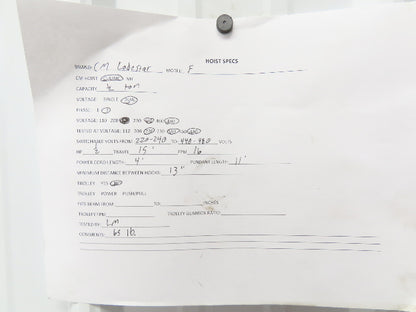 HOIST SPECS
BRAND: CM Lodestar MODEL: F
CAPACITY: ½ ton
VOLTAGE: SINGLE DUAL
PHASE: 1 3
VOLTAGE: 110 208 230 460
TESTED AT VOLTAGE: 112 208
SWITCHABLE VOLTS FROM: 220-240 TO: 440-480 VOLTS
HP ½ TRAVEL 15' FPM 16
POWER CORD LENGTH: 4' PENDANT LENGTH: 11'
MINIMUM DISTANCE BETWEEN HOOKS: 13"
TROLLEY YES NO
TROLLEY: POWER PUSH/PULL
FITS BEAM FROM: TO: INCHES
TROLLEY FPM: TROLLEY GEARBOX RATIO:
TESTED BY: LM
COMMENTS: 65 lb.